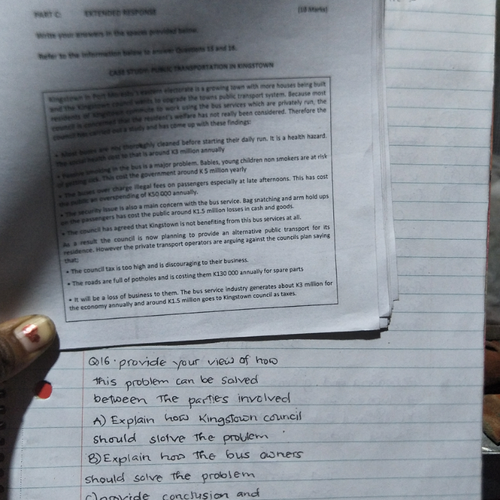 PART C: EXTENDED RESPONSE (10 Marks)
Write your answers in the spaces provided below.
Refer to the information below to answer Questions 15 and 16.
CASE STUDY: PUBLIC TRANSPORTATION IN KINGSTOWN
Kingstown in Port Moresby's eastern electorate is a growing town with more houses being built
and the Kingstown council wants to upgrade the towns public transport system. Because most
residents of Kingstown commute to work using the bus services which are privately run, the
council is concerned that the resident's welfare has not really been considered. Therefore the
council has carried out a study and has come up with these findings:
• Most buses are not thoroughly cleaned before starting their daily run. It is a health hazard.
The total health cost to that is around K3 million annually
• Passive smoking in the bus is a major problem. Babies, young children non smokers are at risk
of getting sick. This cost the government around K 5 million yearly
• The buses over charge illegal fees on passengers especially at late afternoons. This has cost
the public an overspending of K50 000 annually.
• The security issue is also a main concern with the bus service. Bag snatching and arm hold ups
on the passengers has cost the public around K1.5 million losses in cash and goods.
• The council has agreed that Kingstown is not benefiting from this bus services at all.
As a result the council is now planning to provide an alternative public transport for its
residence. However the private transport operators are arguing against the councils plan saying
that;
• The council tax is too high and is discouraging to their business.
• The roads are full of potholes and is costing them K130 000 annually for spare parts
• It will be a loss of business to them. The bus service industry generates about K3 million for
the economy annually and around K1.5 million goes to Kingstown council as taxes.
Q16. provide your view of how
this problem can be solved
between The parties involved
A) Explain how Kingstown council
should slotve the problem
B) Explain how the bus owners
should solve the problem
C) provide conclusion and